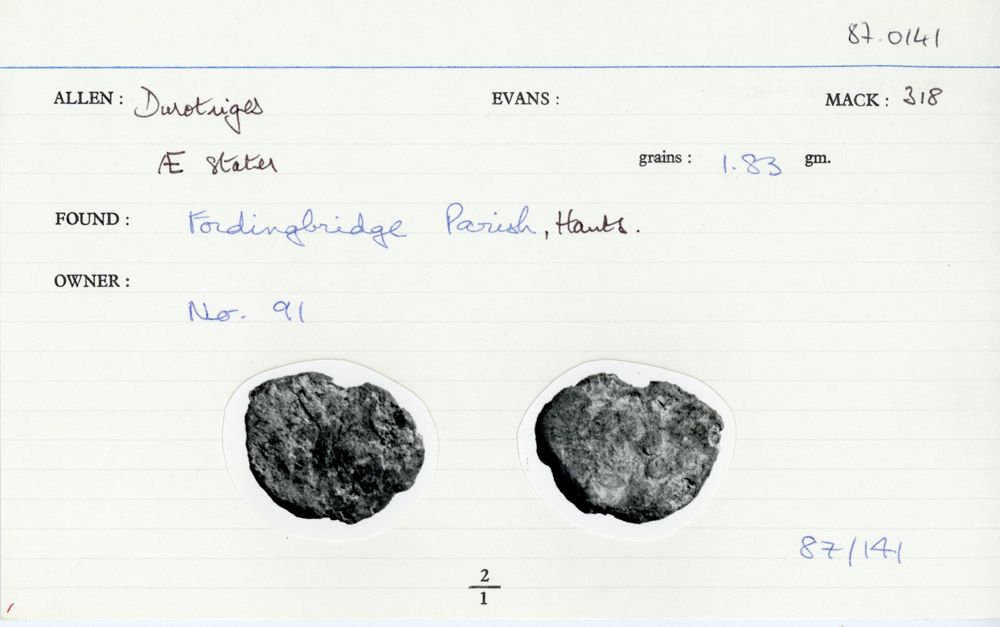 87.0141
ALLEN: Durotriges EVANS: MACK: 318
Æ Stater grains: 1.83 gm.
FOUND: Fordingbridge Parish, Hants.
OWNER:
No. 91
87/141
2
1